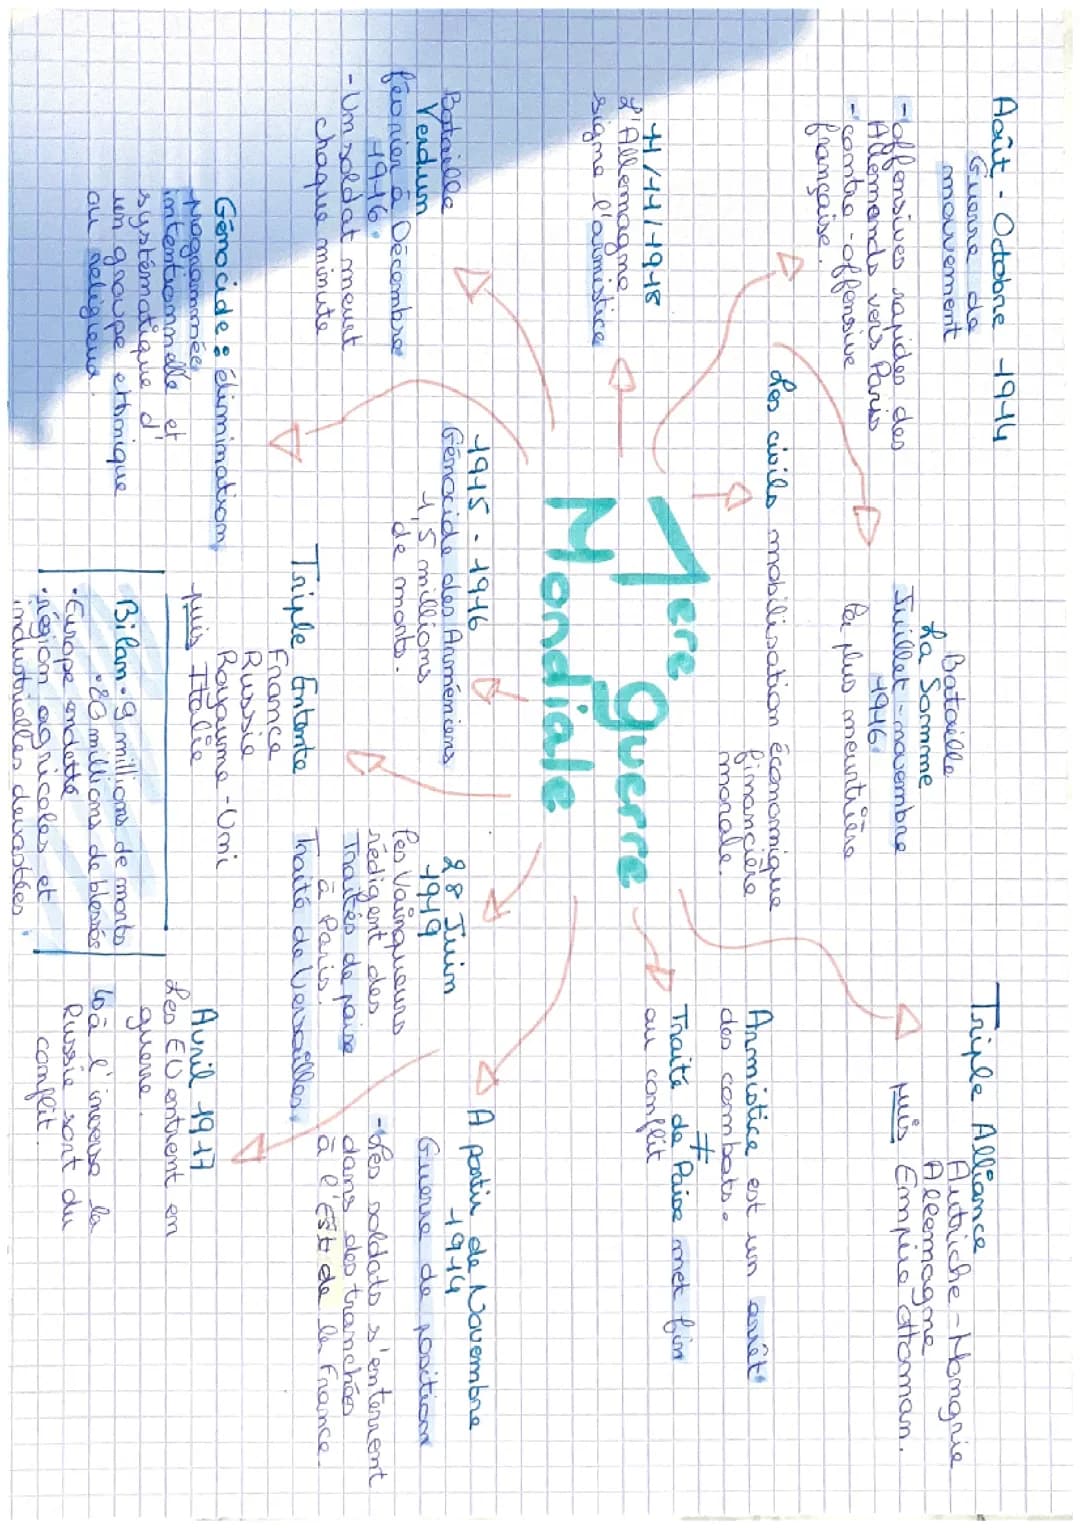 Août - Octobre 1914
Guerre de
mouvement
- offensives rapides des
Allemands vers Paris
- contre-offensive
française.
Bataille
La Somme
Juillet-novembre
1916:
la plus meurtrière
Triple Alliance
Autriche-Hongrie
Allemagne
puis Empire ottoman.
Les civils mobilisation économique
financière
morale.
Armistice est un arrêt
des combats.
≠
Traité de Paix met fin
au conflit
11/11/1918
L'Allemagne
signe l'armistice
1ere guerre
Mondiale
Bataille
Verdun
février à Décembre
1916.
- Un soldat meurt
chaque minute
1915-1916
Génocide des Arméniens
1,5 millions
de morts.
28 Juin
1919
les Vainqueurs
rédigent des
Traités de paix
à Paris.
Traité de Versailles.
A partir de Novembre
1914
Guerre de position
- Les soldats s'enterrent
dans des tranchées
à l'Est de la France.
Génocide: élimination,
programmée,
intentionnelle et
systématique d'
un groupe ethnique
ou religieux.
Triple Entente
France
Russie
Royaume-Uni
puis Italie
Bilan • 9 millions de morts
• 20 millions de blessés
• Europe endetté
• région agricoles et
industrielles devastées.
Avril 1917
Les EU entrent en
guerre.
↳ à l'inverse la
Russie sort du
conflit.